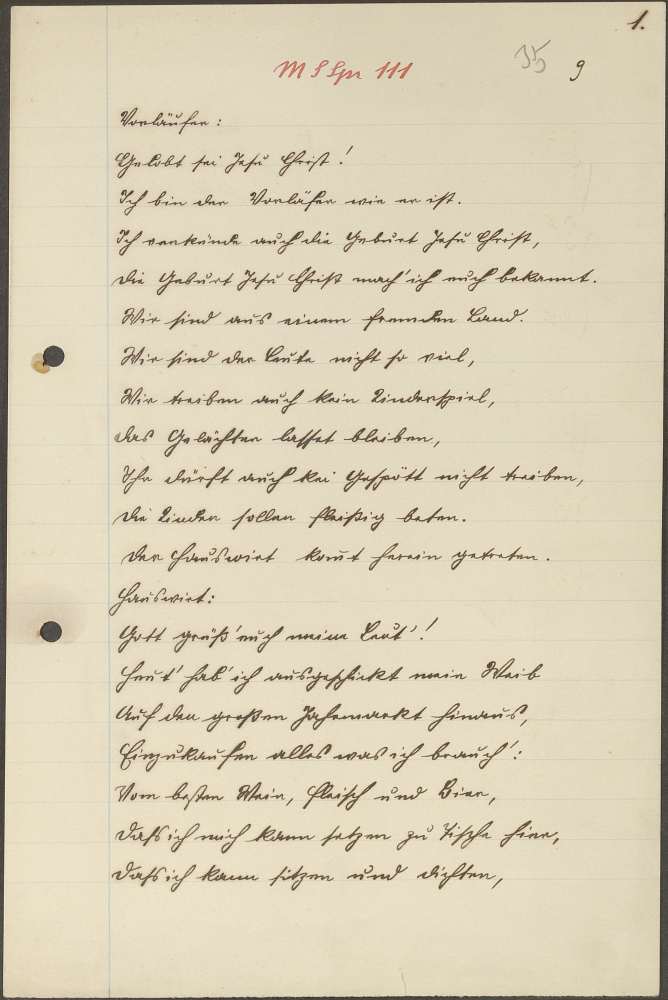 1.
MS Spr 111
35 9
Vorläufer:
Gelobt sei Jesu Christ!
Ich bin der Vorläfer wie er ist.
Ich verkünde auch die Geburt Jesu Christ,
Die Geburt Jesu Christ mach' ich euch bekannt.
Wir sind aus einem fremden Land.
Wir sind der Leute nicht so viel,
Wir treiben auch kein Kinderspiel,
Das Gelächter lasset bleiben,
Ihr dürft auch kei Gespött nicht treiben,
Die Kinder sollen fleißig beten.
Der Hauswirt kom̄t herein getreten.
Hauswirt:
Gott grüß' euch meine Leut'!
Heut' hab' ich ausgeschickt mein Weib
Auf den großen Jahrmarkt hinaus,
Einzukaufen alles was ich brauch':
Vom besten Wein, Fleisch und Bier,
Dass ich mich kann setzen zu Tische hier,
Dass ich kann sitzen und dichten,